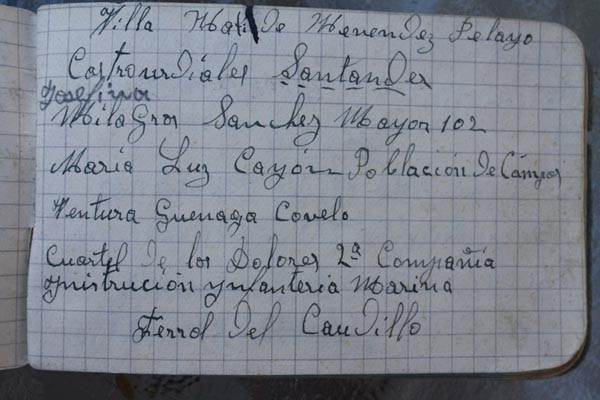 Villa Mar de Menendez Pelayo
Castrourdiales Santander
Josefina
Milagros Sanchez Mayor 102
Maria Luz Cayón Población de Campos
Ventura Guenaga Covelo
Cuartel de los Dolores 2ª Compañia
Ynstrucción Ynfanteria Marina
Ferrol del Caudillo